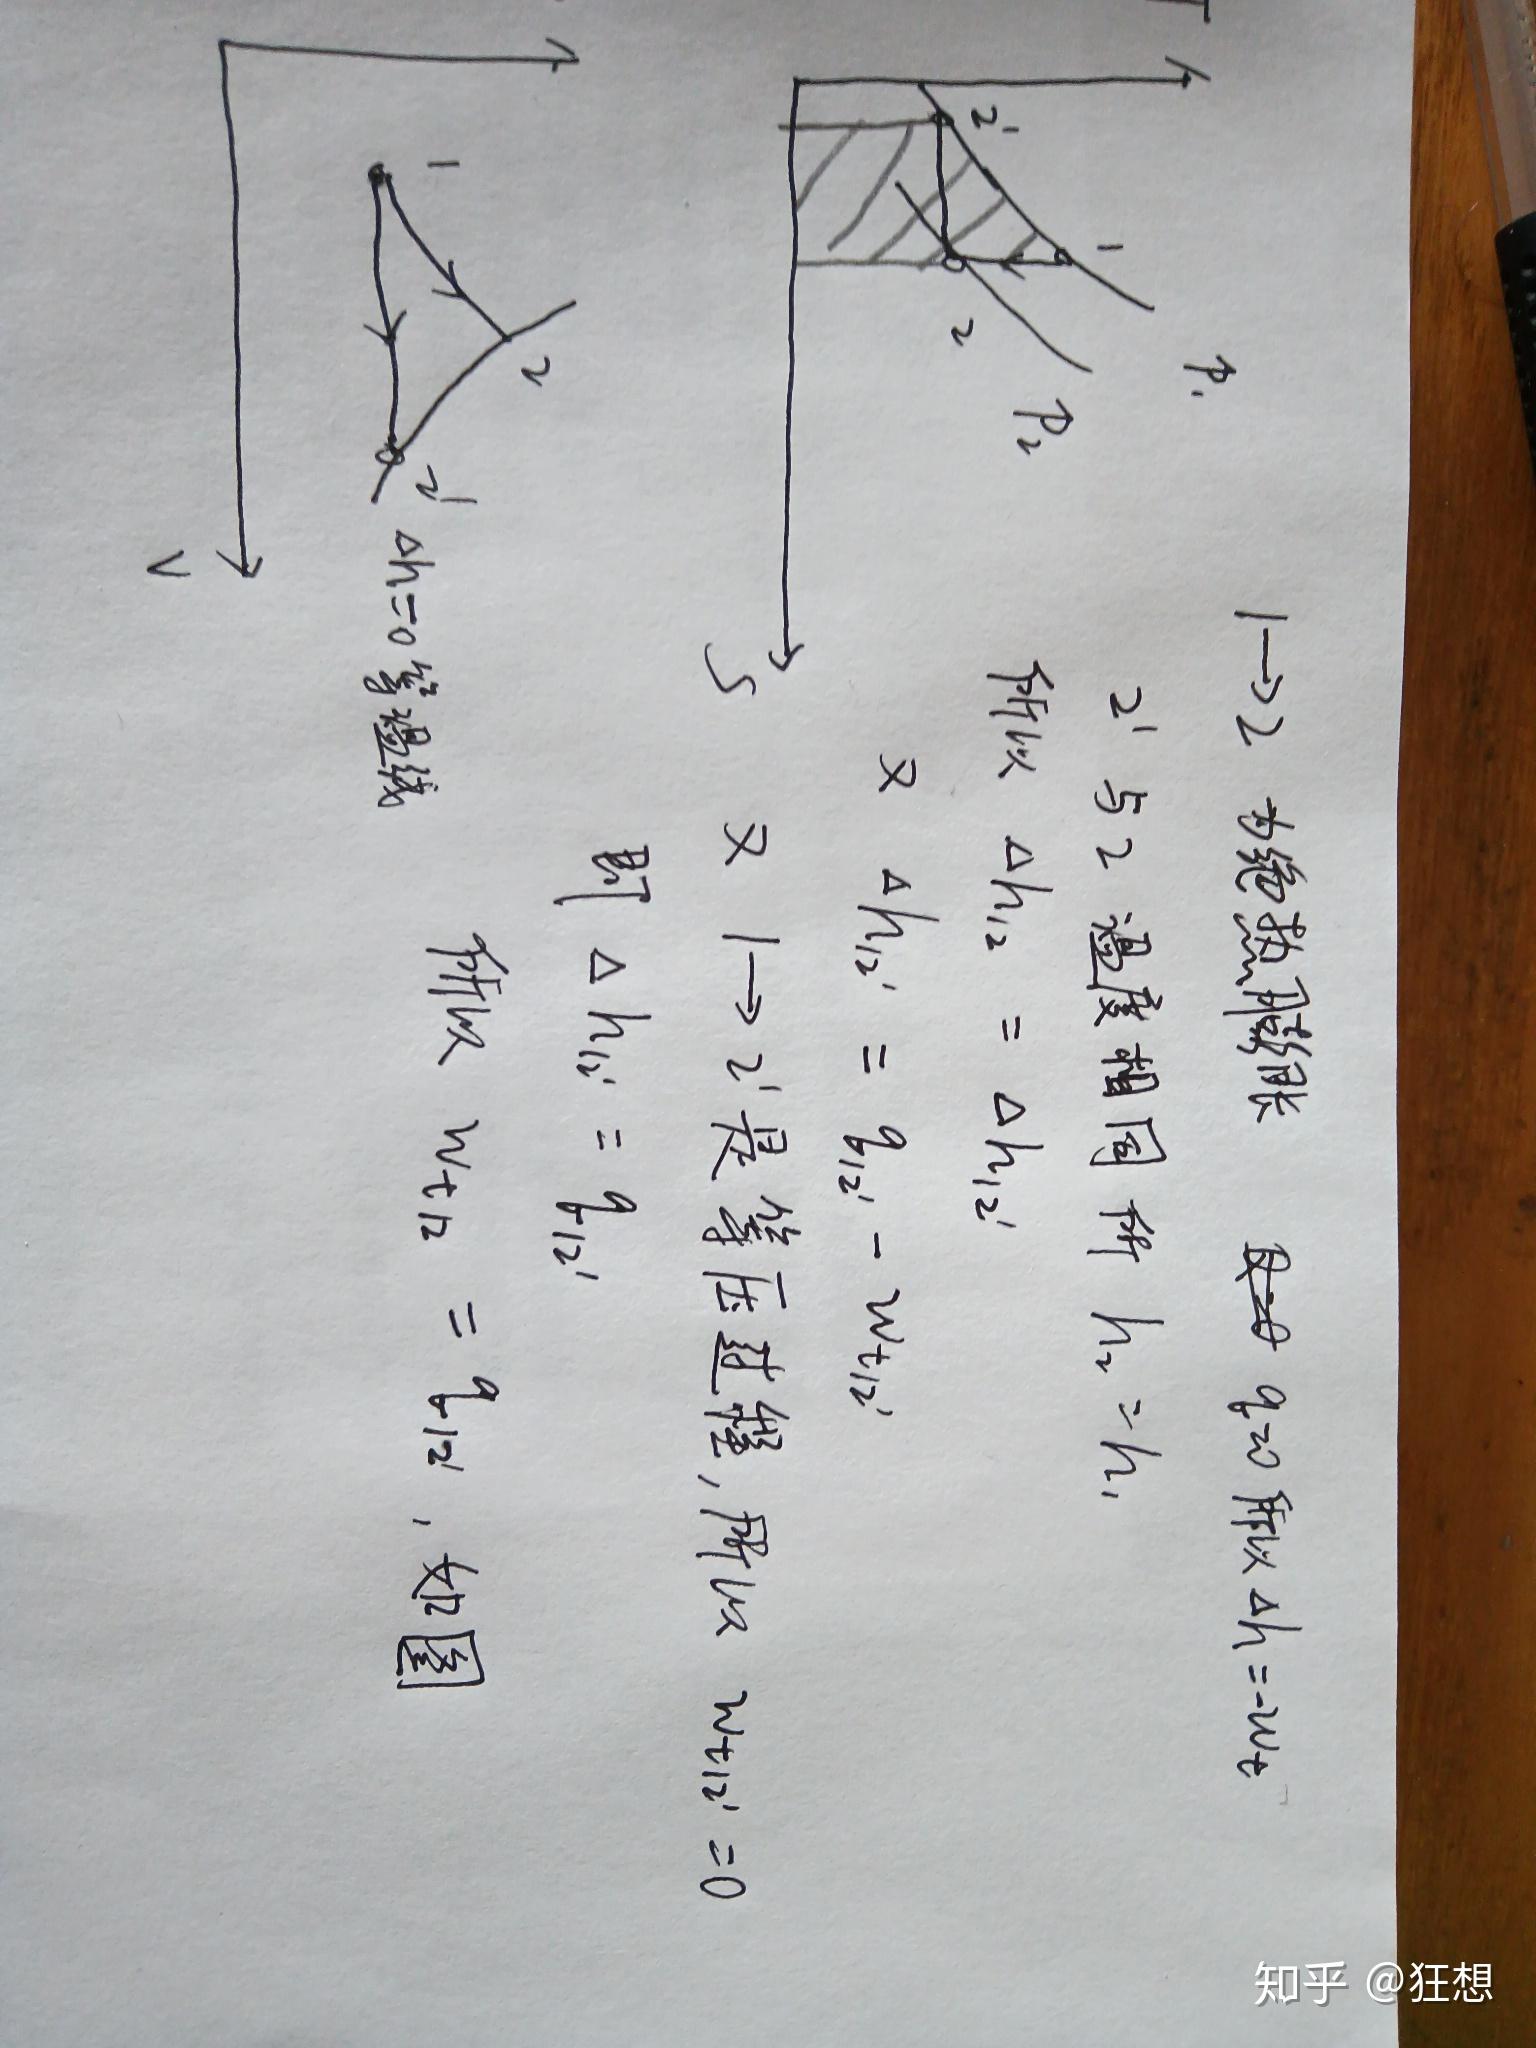 T
2'
1
2
P₁
P₂
S
1→2 为绝热膨胀 q=0 所以 Δh=-wt
2' 与 2 温度相同 所 h₂=h₁
所以 Δh₁₂ = Δh₁₂'
又 Δh₁₂' = q₁₂' - wt₁₂'
又 1→2' 是等压过程,所以 wt₁₂'=0
即 Δh₁₂' = q₁₂'
所以 wt₁₂ = q₁₂', 如图
1
2
2'
V
Δh=0 等温线
知乎 @狂想